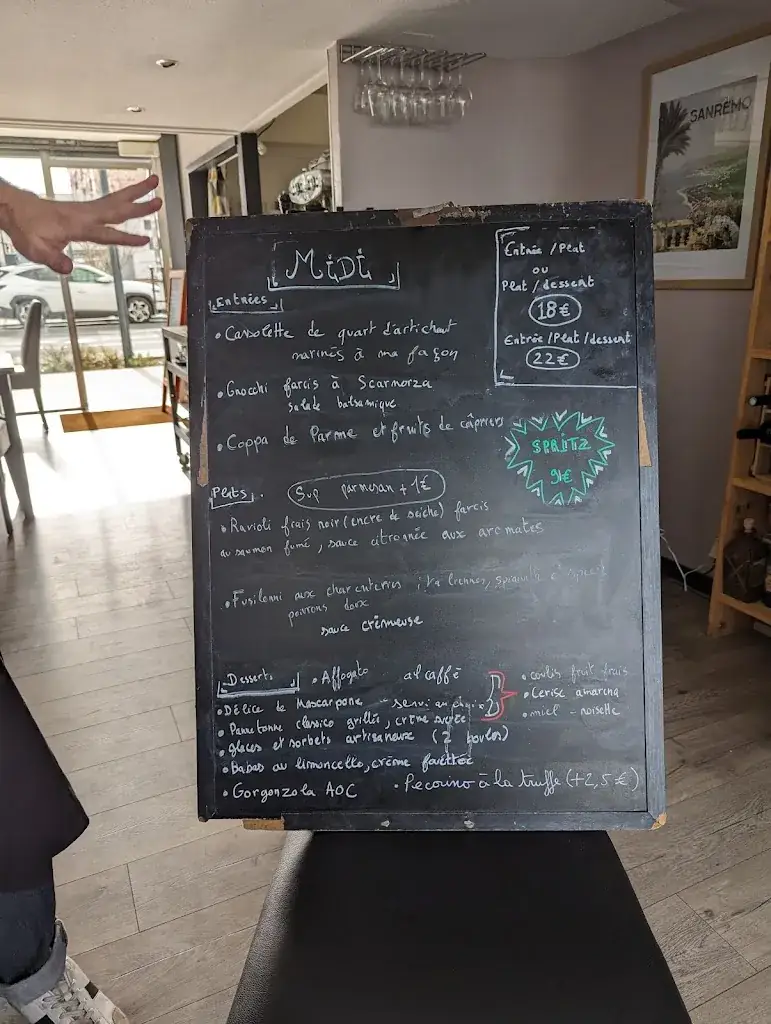 MiDi
Entrée / Plat
ou
Plat / dessert
18€
Entrée / Plat / dessert
22€
Entrées
• Cassolette de quart d'artichaut
marinés à ma façon
• Gnocchi farcis à Scamorza
salade balsamique
• Coppa de Parme et fruits de câpriers
SPRITZ
9€
Plats.
Sup parmesan + 1€
• Ravioli frais noir (encre de seiche) farcis
au saumon fumé, sauce citronnée aux aromates
• Fusilonni aux charcuteries
poivrons doux
sauce crémeuse
Desserts
• Affogato al caffé
• Délice de Mascarpone - servi au choix
• coulis fruit frais
• Cerise amarena
• miel - noisette
• Panettone classico grillé, crème sucrée
• glaces et sorbets artisanaux (2 boules)
• Babas au limoncello, crème fouettée
• Gorgonzola AOC
• Pecorino à la truffe (+2,5€)
SANREMO